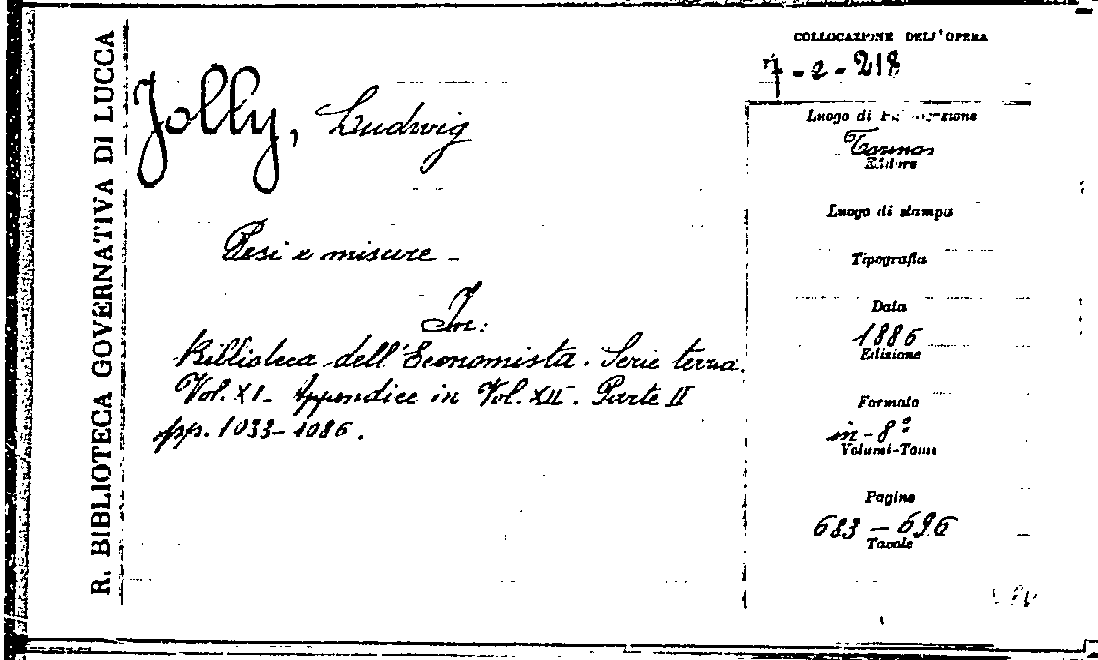 R. BIBLIOTECA GOVERNATIVA DI LUCCA
Jolly, Ludwig
Pesi e misure -
In:
Biblioteca dell'Economista. Serie terza.
Vol. XI. Appendice in Vol. XII. Parte II
pp. 1033-1086.
COLLOCAZIONE DELL'OPERA
7-2-218
Luogo di
Torino
Editore
Luogo di stampa
Tipografia
Data
1886
Edizione
Formato
in-8º
Volumi-Tomi
Pagine
683-696
Tavole